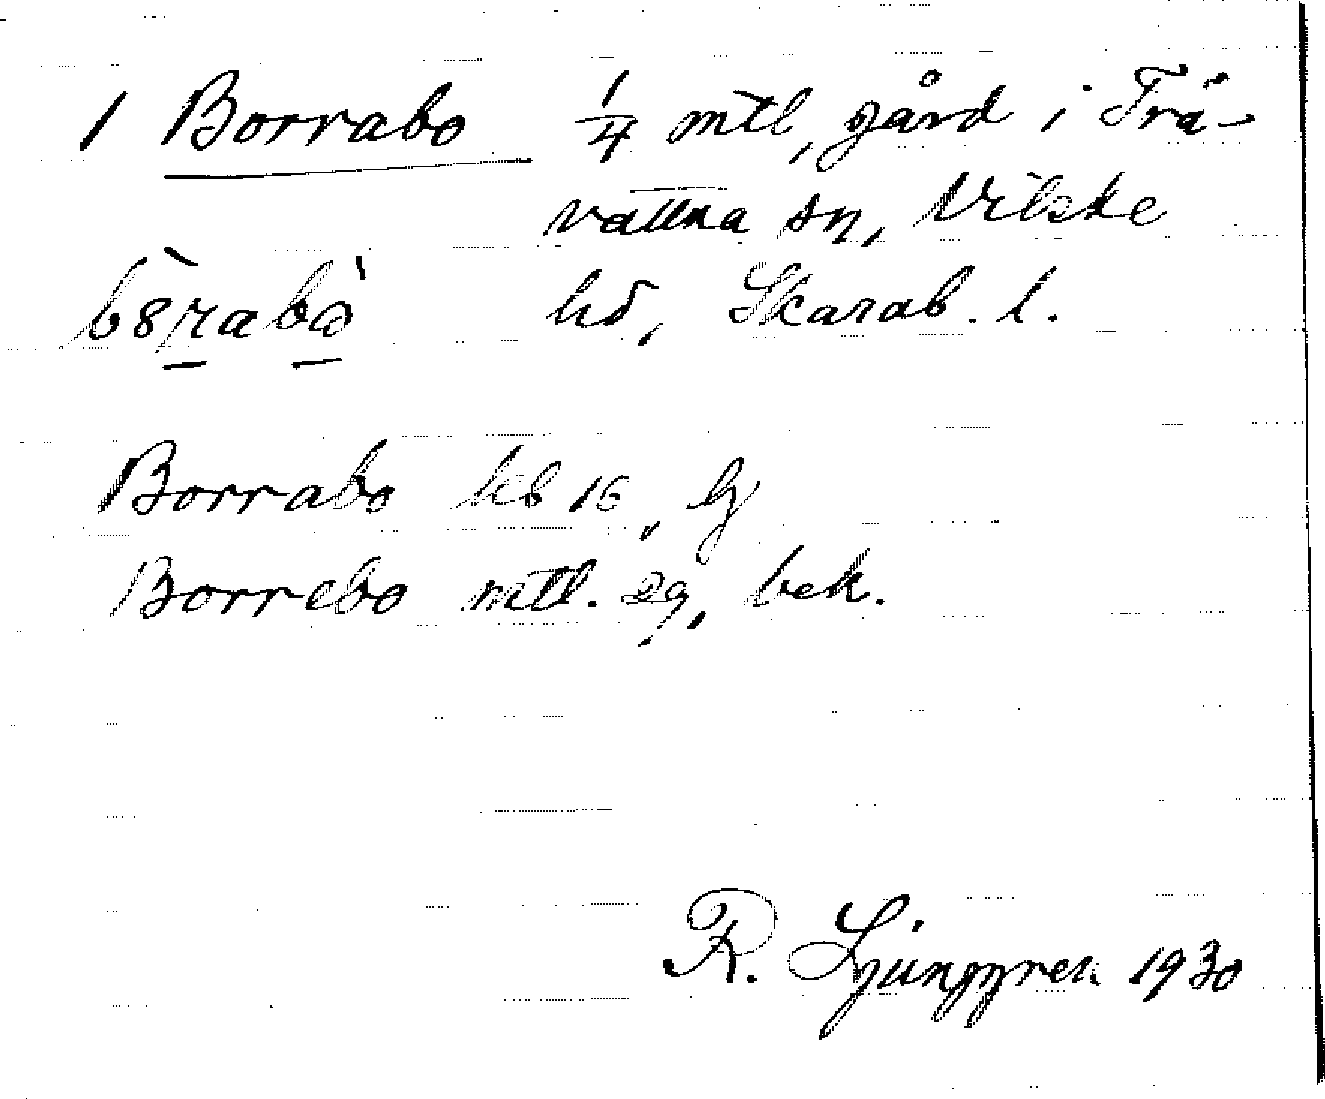 1 Borrabo 1/4 mtl, gård i Trä-
vattna sn, Vilske
hd, Skarab. l.
Borrabo keb 16, lj
Borrebo mtl. 29, bek.
R. Ljunggren 1930